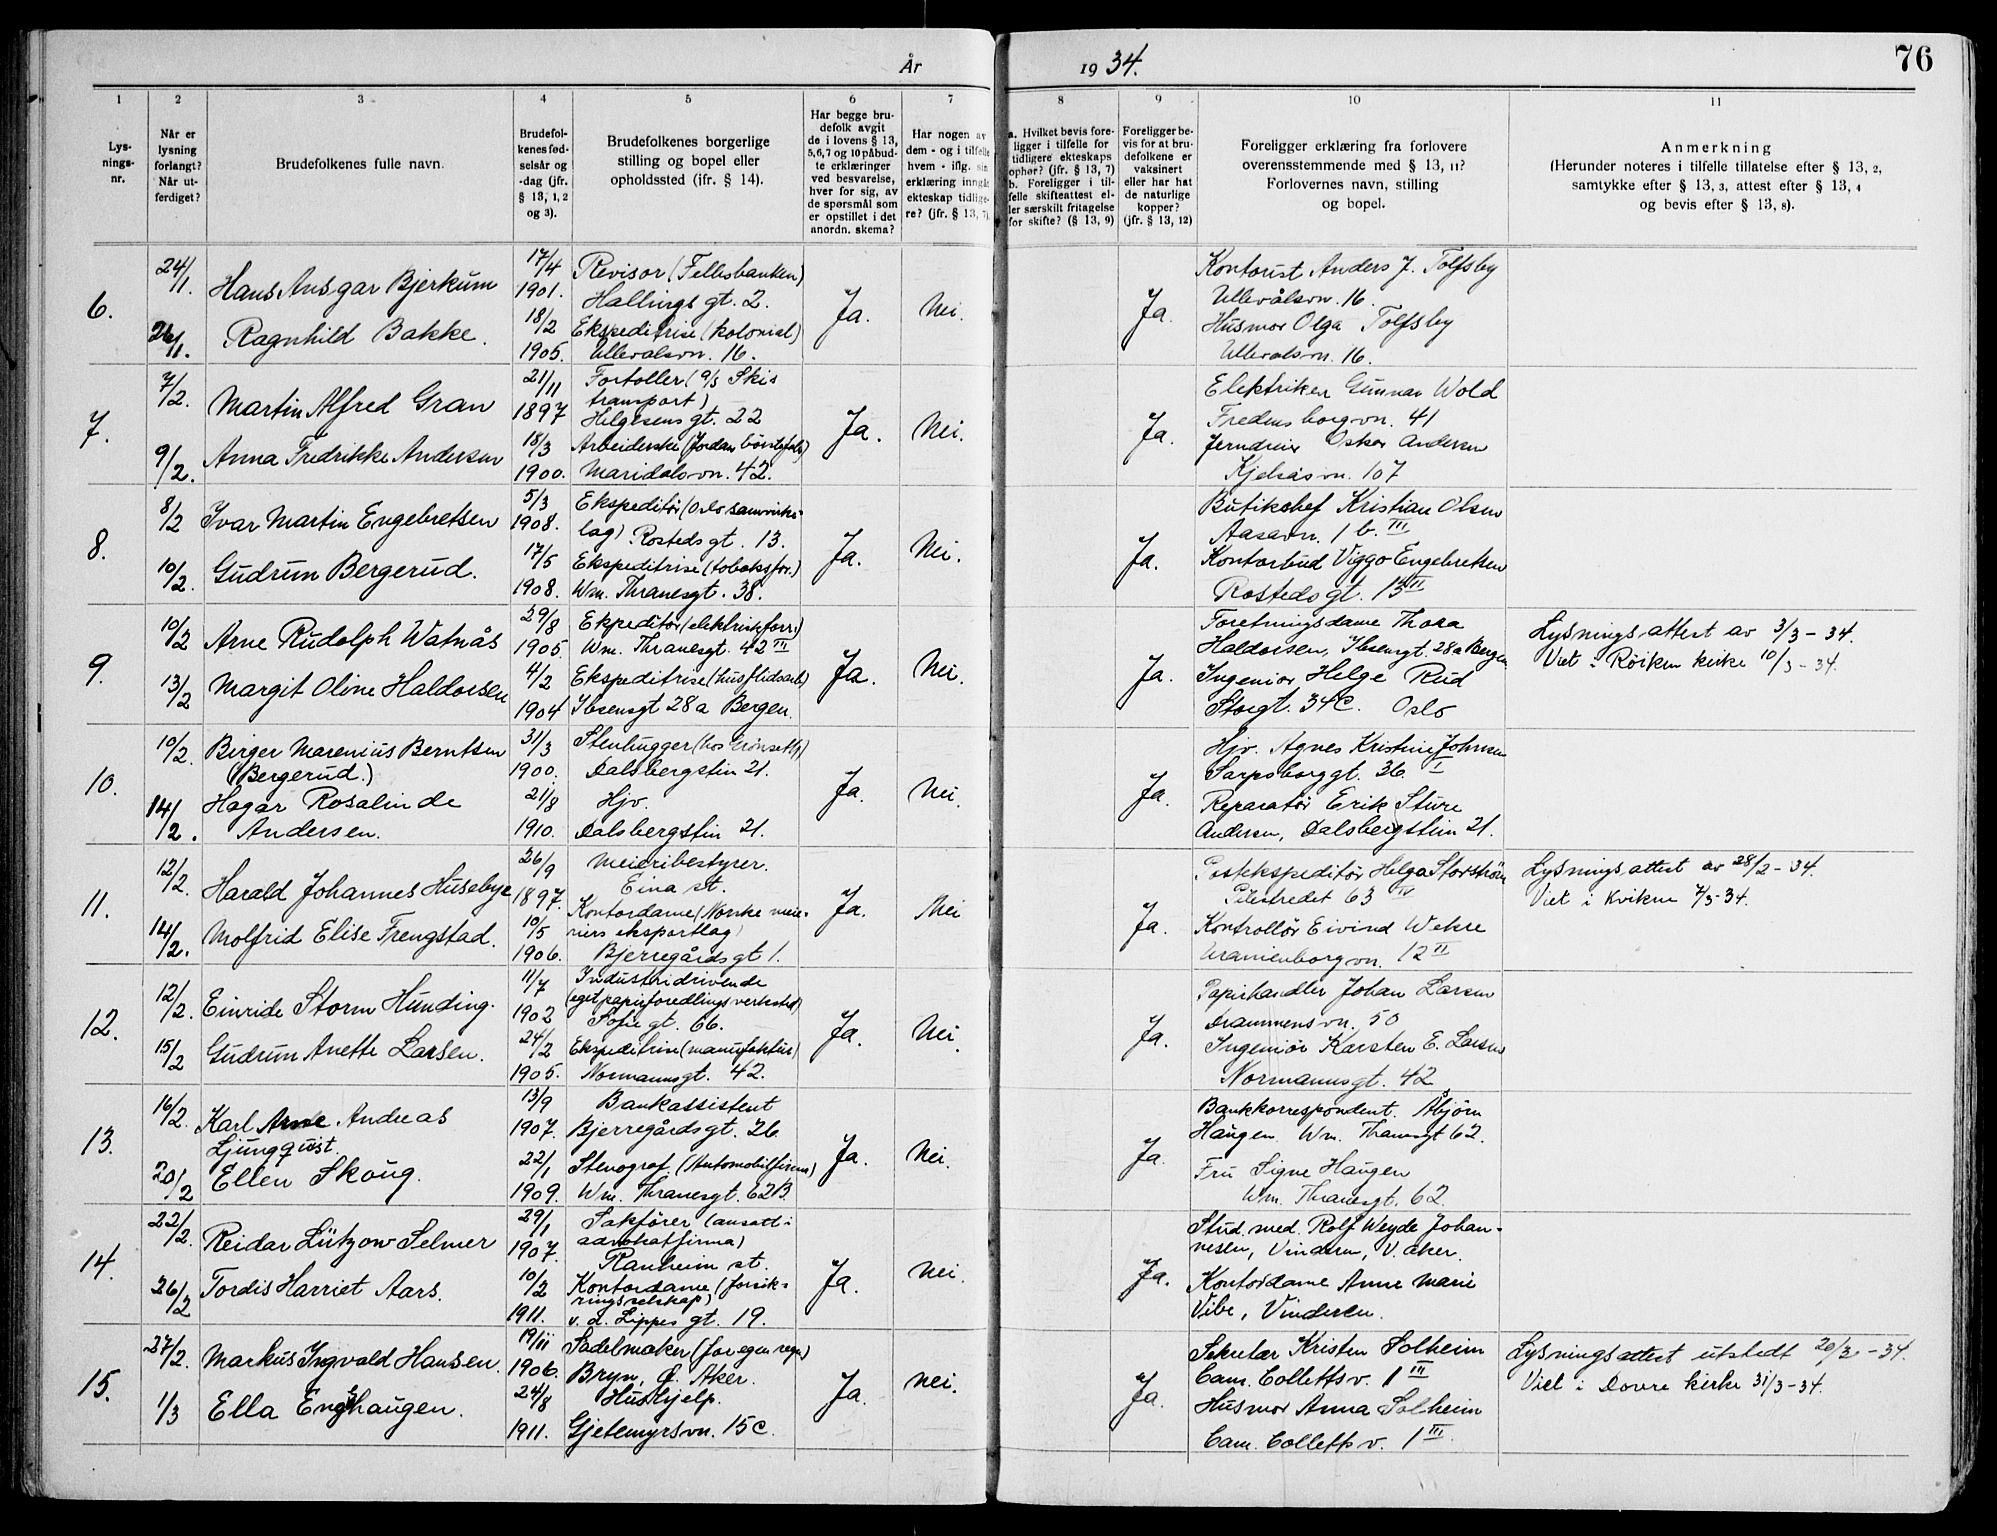 År 1934.
76
1 2 3 4 5 6 7 8 9 10 11
Lys-
nings-
nr.
Når er
lysning
forlangt?
Når ut-
ferdiget?
Brudefolkenes fulle navn.
Brudefol-
kenes fød-
selsår og
-dag (jfr.
§ 13, 1, 2
og 3).
Brudefolkenes borgerlige
stilling og bopel eller
opholdssted (jfr. § 14).
Har begge bru-
defolk avgit
de i lovens § 13,
5,6,7 og 10 påbud-
te erklæringer
ved besvarelse,
hver for sig, av
de spørsmål som
er opstillet i det
anordn. skema?
Har nogen av
dem - og i tilfelle
hvem - iflg. sin
erklæring inngåt
ekteskap tidlige-
re? (jfr. § 13, 7)
a. Hvilket bevis fore-
ligger i tilfelle for
tidligere ekteskaps
ophør? (jfr. § 13, 7)
b. Foreligger i til-
felle skifteattest el-
ler særskilt fritagelse
for skifte? (§ 13, 9)
Foreligger be-
vis for at bru-
defolkene er
vaksinert
eller har hat
de naturlige
kopper?
(jfr. § 13, 12)
Foreligger erklæring fra forlovere
overensstemmende med § 13, 11?
Forlovernes navn, stilling
og bopel.
Anmerkning
(Herunder noteres i tilfelle tillatelse efter § 13, 2,
samtykke efter § 13, 3, attest efter § 13, 4
og bevis efter § 13, 8).
6.
24/1.
26/1.
Hans Ansgar Bjerkum
Ragnhild Bakke.
17/4
1901.
18/2
1905.
Revisor (Fellesbanken)
Hallings gt. 2.
Ekspeditrise (kolonial)
Ullevalsvn. 16.
Ja.
Nei.
Ja.
Kontorist Anders J. Tolfsby
Ullevålsvn. 16.
Husmor Olga Tolfsby
Ullevalsvn. 16.
7.
7/2.
9/2.
Martin Alfred Gran
Anna Fredrikke Andersen
21/11
1897
18/3
1900.
Fortoller (a/s Skis
transport)
Helgesens gt. 22
Arbeiderske (Jordan børstefab.)
Maridalsvn. 42.
Ja.
Nei.
Ja.
Elektriker Gunnar Wold
Fredensborgvn. 41
Jerndreier Oskar Andersen
Kjelsåsvn. 107
8.
8/2
10/2.
Ivar Martin Engebretsen
Gudrun Bergerud.
5/3
1908.
17/5
1908.
Ekspeditør (Oslo samvirke-
lag) Rosteds gt. 13.
Ekspeditrise (tobaksforr.)
Wm. Thranesgt. 38.
Ja.
Nei.
Ja.
Butikchef Kristian Olsen
Aasavn. 1 b. III
Kontorbud Viggo Engebretsen
Rosteds gt. 13 III
9.
10/2
13/2
Arne Rudolph Watnås
Margit Oline Haldorsen
29/8
1905.
4/2
1904
Ekspeditør (elektriskforr.)
Wm. Thranesgt. 42 III
Ekspeditrise (husflidsarb.)
Ibsensgt 28a Bergen.
Ja.
Nei.
Ja.
Foretningsdame Thora
Haldorsen, Ibsensgt. 28a Bergen
Ingeniør Helge Rud
Storgt. 34C. Oslo
Lysningsattest av 3/3-34.
Viet i Röiken kirke 10/3-34.
10.
10/2.
14/2.
Birger Marenius Berntsen
(Bergerud.)
Hagar Rosalinde
Andersen.
31/3
1900.
21/8
1910.
Stenhugger (hos Grönseth)
Dalsbergstin 21.
Hjv.
Dalsbergstin 21.
Ja.
Nei.
Ja.
Hjv. Agnes Kristine Johnsen
Sarpsborggt. 36 I
Reparatör Erik Sture
Andersen, Dalsbergstien 21.
11.
12/2.
14/2.
Harald Johannes Husebye
Molfrid Elise Frengstad.
26/9
1897.
10/5
1906.
Meieribestyrer.
Eina st.
Kontordame (Norske meie-
riers eksportlag)
Bjerregårdsgt 1.
Ja.
Nei
Ja.
Postekspeditör Helga Storström
Pilestredet 63 IV
Kontrollör Eivind Wehre
Uranienborgvn. 12 II
Lysningsattest av 28/2-34.
Viet i Kvikne 7/3-34.
12.
12/2.
15/2
Einride Storm Hunding.
Gudrun Anette Larsen.
11/7
1902
24/2
1905.
Industridrivende
(eget papirforedlingsverksted)
Sofie gt. 66.
Ekspeditrise (manufaktur)
Normannsgt. 42.
Ja.
Nei.
Ja.
Papirhandler Johan Larsen
Drammensvn. 50
Ingeniör Karsten E. Larsen
Normannsgt. 42
13.
16/2.
20/2
Karl Arne Andreas
Ljungquist.
Ellen Skoug.
13/9
1907.
22/1
1909.
Bankassistent
Bjerregårdsgt. 26.
Stenograf. (Automobilfirma)
Wm. Thranesgt. 62B.
Ja.
Nei.
Ja.
Bankkorrespondent. Åbjörn
Haugen Wm. Thranesgt 62.
Fru Signe Haugen
Wm. Thranesgt. 62
14.
22/2.
26/2
Reidar Lützow Selmer
Tordis Harriet Aars.
29/1
1907.
10/2
1911.
Sakförer (ansatt i
advokatfirma)
Ranheim st.
Kontordame (forsik-
ringsselskap)
v. d. Lippes gt. 19.
Ja.
Nei.
Ja.
Stud. med. Rolf Weyde Johan-
nesen, Vinderen, V. Aker.
Kontordame Anne Marie
Vibe, Vinderen.
15.
27/2.
1/3
Markus Ingvald Hansen.
Ella Engshaugen.
19/11
1906.
24/8
1911.
Sadelmaker (for egen regn.)
Bryn, Ö. Aker.
Hushjelp.
Gjetemyrsvn. 15c.
Ja.
Nei.
Ja.
Sekretær Kristen Solheim
Cam. Colletts v. 1 III
Husmor Anna Solheim
Cam. Colletts v. 1 III.
Lysningsattest utstedt 20/3-34.
Viet i Dovre kirke 31/3-34.